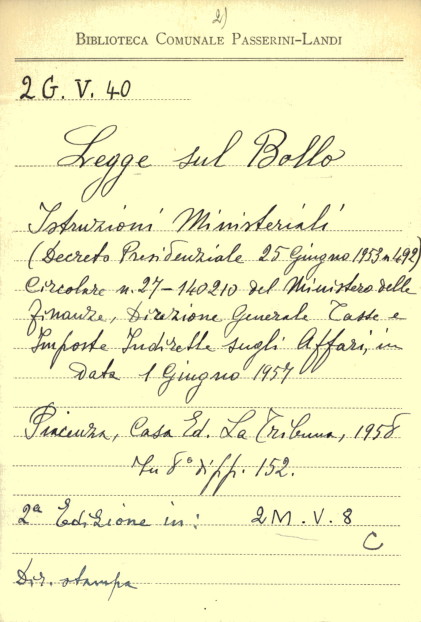 2)
BIBLIOTECA COMUNALE PASSERINI-LANDI
2 G. V. 40
Legge sul Bollo
Istruzioni Ministeriali
(Decreto Presidenziale 25 Giugno 1953 n 492)
Circolare n. 27-140210 del Ministero delle
Finanze, Direzione Generale Tasse e
Imposte Indirette sugli Affari, in
data 1 Giugno 1957
Piacenza, Casa Ed. La Tribuna, 1958
In 8° di pp. 152.
2ª Edizione in: 2 M. V. 8
C
Dir. stampa